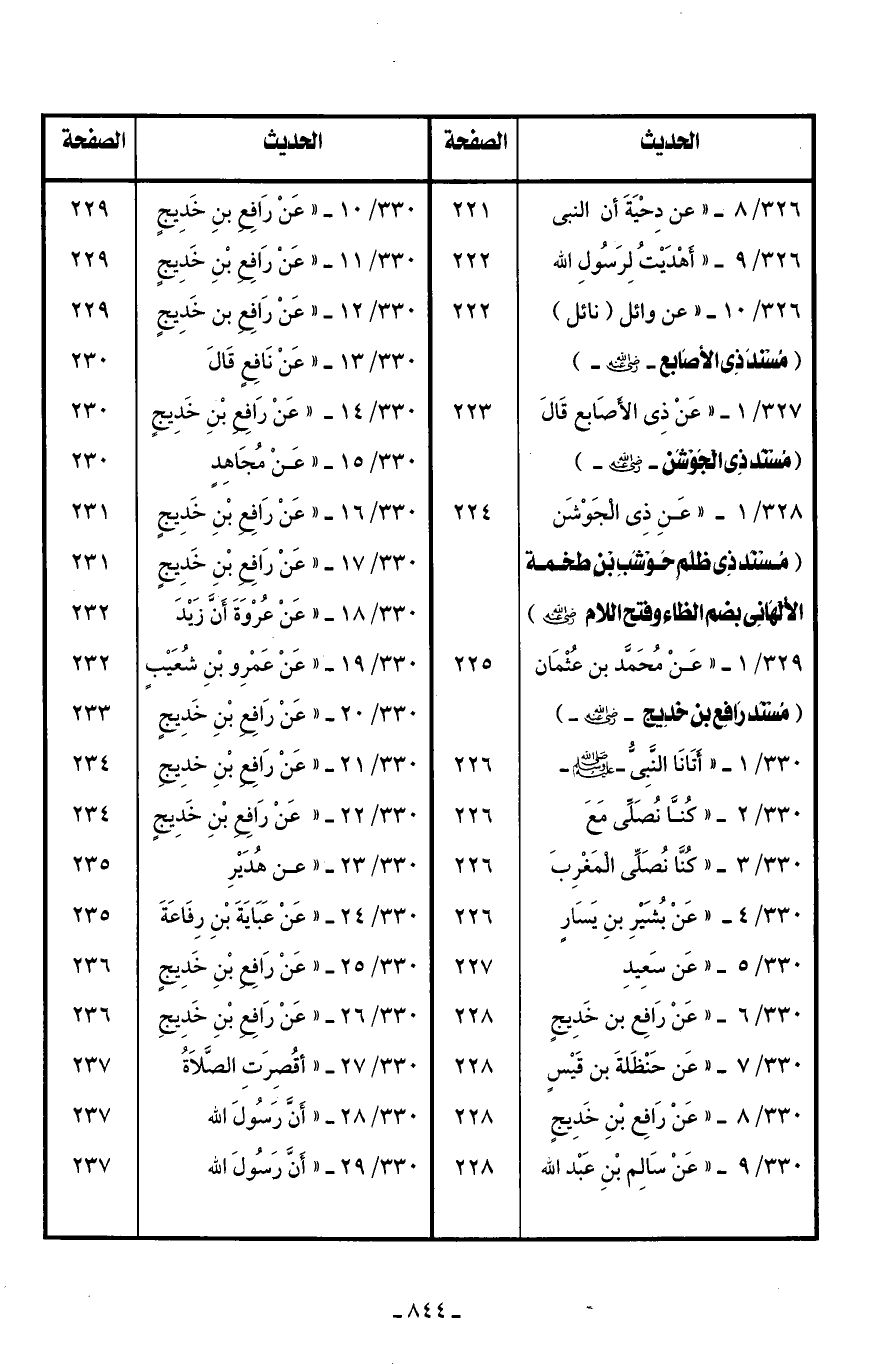 الحديث الصفحة
٨/٣٢٦ ـ « عن دِحْيَةَ أن النبى ٢٢١
٩/٣٢٦ ـ « أَهْدَيْتُ لِرَسُولِ الله ٢٢٢
١٠/٣٢٦ ـ « عن وائل ( نائل ) ٢٢٢
( مُسْنَدُ ذِى الأصَابع ـ رضي الله عنه ـ )
١/٣٢٧ ـ « عَنْ ذِى الأَصَابع قَالَ ٢٢٣
( مُسْنَد ذِى الجَوْشَنْ ـ رضي الله عنه ـ )
١/٣٢٨ ـ « عَـنِ ذِى الْجَوْشَن ٢٢٤
( مُـسْنَد ذِى ظُلَم حَـوْشَب بْن طخـمـة
الألْهَانِى بضم الظاء وفتح اللام رضي الله عنه )
١/٣٢٩ ـ « عَـنْ مُحَمَّد بن عُثْمَان ٢٢٥
( مُسْنَد رَافِع بن خَدِيج ـ رضي الله عنه ـ )
١/٣٣٠ ـ « أَتَانَا النَّبِىُّ ـ صلى الله عليه وسلم ـ ٢٢٦
٢/٣٣٠ ـ « كُنـَّا نُصَلِّى مَعَ ٢٢٦
٣/٣٣٠ ـ « كُنَّا نُصَلِّى الْمَغْرِبَ ٢٢٦
٤/٣٣٠ ـ « عَنْ بُشَيْرِ بنِ يَسَارٍ ٢٢٦
٥/٣٣٠ ـ « عَن سَعِيدِ ٢٢٧
٦/٣٣٠ ـ « عَنْ رَافِعِ بن خَدِيجٍ ٢٢٨
٧/٣٣٠ ـ « عَن حَنْظَلَةَ بن قَيْسٍ ٢٢٨
٨/٣٣٠ ـ « عَنْ رَافِعِ بْنِ خَدِيجٍ ٢٢٨
٩/٣٣٠ ـ « عَنْ سَالِمِ بْنِ عَبْد الله ٢٢٨
الحديث الصفحة
١٠/٣٣٠ ـ « عَنْ رَافِعِ بنِ خَدِيجٍ ٢٢٩
١١/٣٣٠ ـ « عَنْ رَافِعِ بْنِ خَدِيجٍ ٢٢٩
١٢/٣٣٠ ـ « عَنْ رَافِعِ بن خَدِيجٍ ٢٢٩
١٣/٣٣٠ ـ « عَنْ نَافِعٍ قَالَ ٢٣٠
١٤/٣٣٠ ـ « عَنْ رَافِعِ بْنِ خَدِيجٍ ٢٣٠
١٥/٣٣٠ ـ « عَـنْ مُجَاهِدٍ ٢٣٠
١٦/٣٣٠ ـ « عَنْ رَافِعِ بْنِ خَدِيجٍ ٢٣١
١٧/٣٣٠ ـ « عَنْ رَافِعِ بْنِ خَدِيجٍ ٢٣١
١٨/٣٣٠ ـ « عَنْ عُرْوَةَ أَنَّ زَيْدَ ٢٣٢
١٩/٣٣٠ ـ « عَنْ عَمْرِو بْنِ شُعَيْبٍ ٢٣٢
٢٠/٣٣٠ ـ « عَنْ رَافِعِ بْنِ خَدِيجٍ ٢٣٣
٢١/٣٣٠ ـ « عَنْ رَافِعِ بْنِ خديجِ ٢٣٤
٢٢/٣٣٠ ـ « عَنْ رَافِعِ بْنِ خَدِيجٍ ٢٣٤
٢٣/٣٣٠ ـ « عـن هُدَيْرِ ٢٣٥
٢٤/٣٣٠ ـ « عَنْ عَبَايَةَ بْنِ رِفَاعَةَ ٢٣٥
٢٥/٣٣٠ ـ « عَنْ رَافِعِ بْنِ خَدِيجٍ ٢٣٦
٢٦/٣٣٠ ـ « عَنْ رَافِعِ بْنِ خَدِيجِ ٢٣٦
٢٧/٣٣٠ ـ « أقُصِرَتِ الصَّلاَةُ ٢٣٧
٢٨/٣٣٠ ـ « أَنَّ رَسُولَ الله ٢٣٧
٢٩/٣٣٠ ـ « أَنَّ رَسُولَ الله ٢٣٧
ـ ٨٤٤ ـ